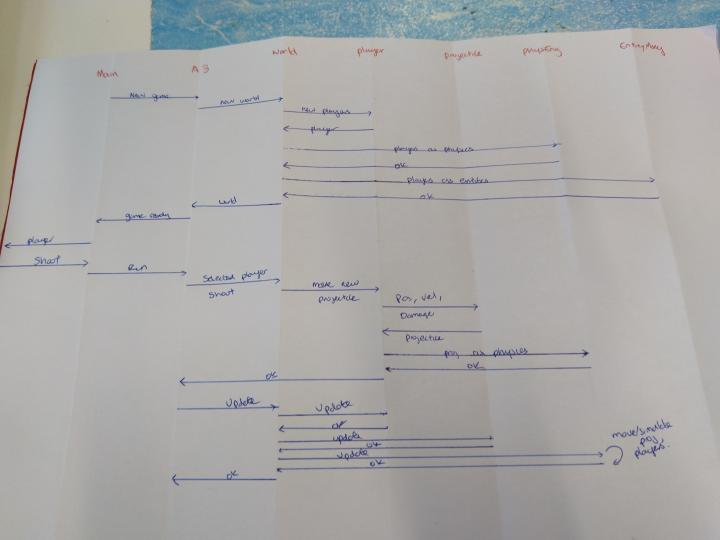 Main
A3
World
player
projectile
physEng
New game
new world
new players
player
players as physics
OK
players as entities
OK
world
game ready
player
Shoot
Run
Selected player
Shoot
make new
projectile
Pos, Vel,
Damage
projectile
proj as physics
OK
OK
update
update
OK
update
OK
update
OK
move/simulate
proj
players.
OK